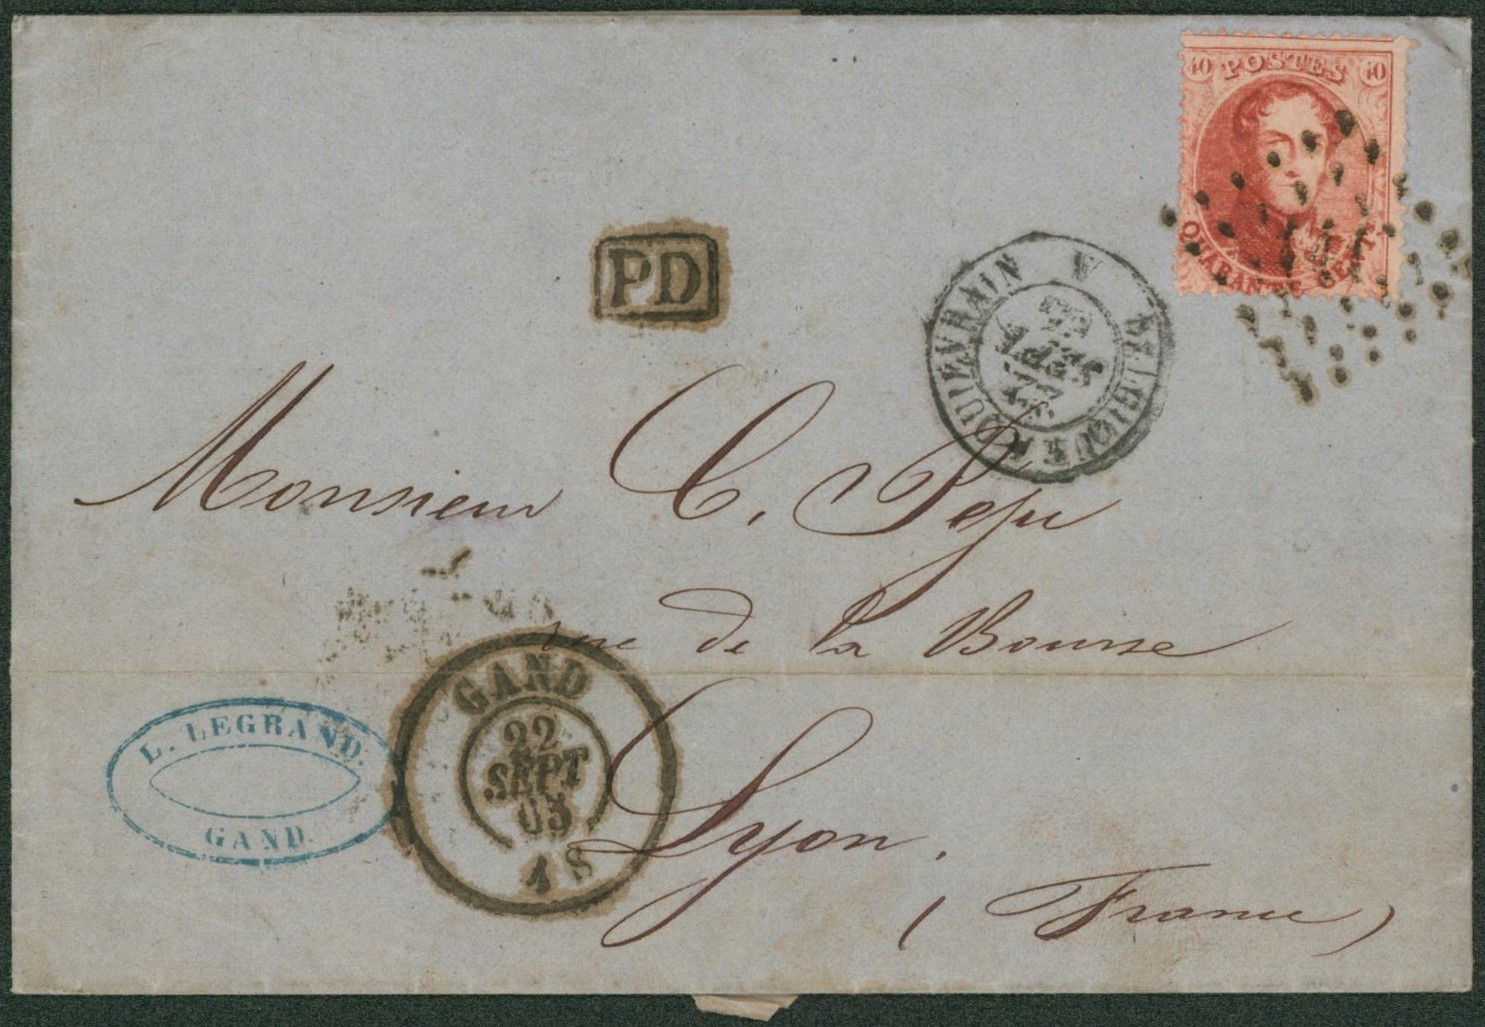 40 POSTES 40
QUARANTE CENTS
PD
BELGIQUE QUIEVRAIN
22
SEPT
Monsieur C.
rue de la Bourse
GAND
22
SEPT
63
4 S
L. LEGRAND.
GAND.
Lyon.
(France)